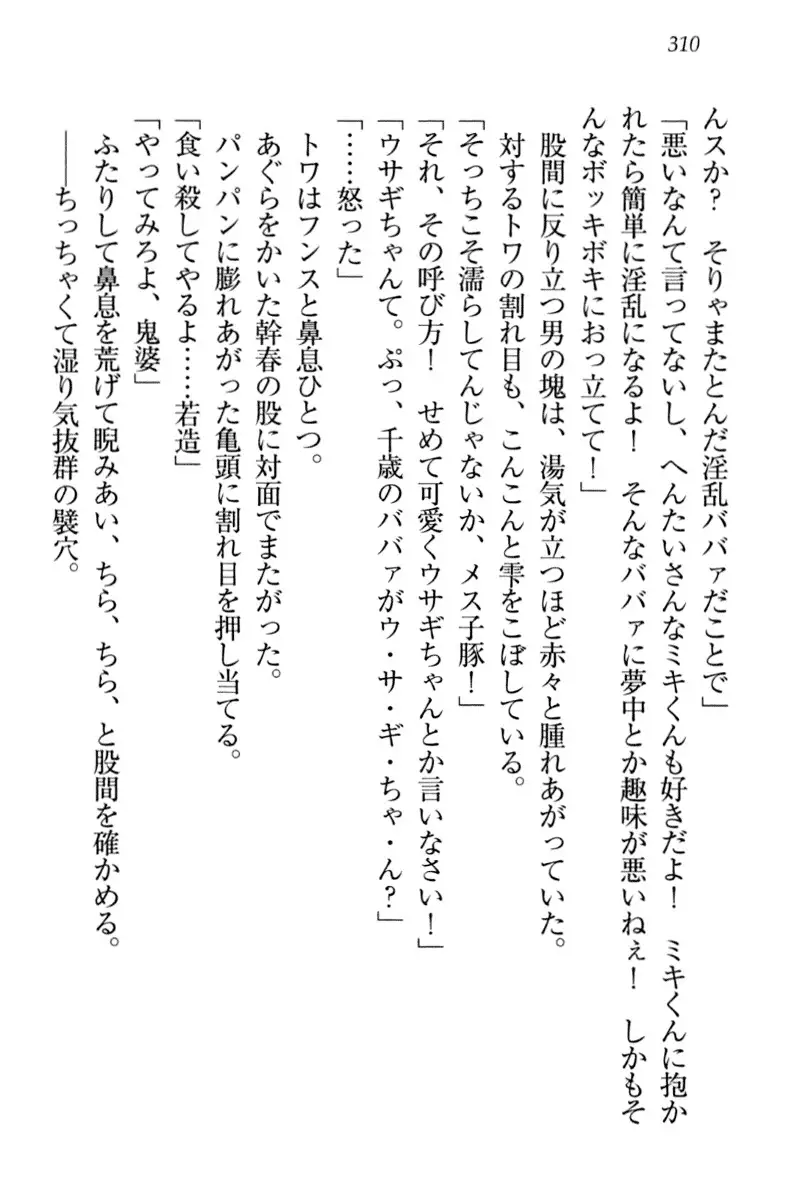 310
んスか？　そりゃまたとんだ淫乱ババァだことで」
「悪いなんて言ってないし、へんたいさんなミキくんも好きだよ！　ミキくんに抱か
れたら簡単に淫乱になるよ！　そんなババァに夢中とか趣味が悪いねぇ！　しかもそ
んなボッキボキにおっ立てて！」
　股間に反り立つ男の塊は、湯気が立つほど赤々と腫れあがっていた。
　対するトワの割れ目も、こんこんと雫をこぼしている。
「そっちこそ濡らしてんじゃないか、メス子豚！」
「それ、その呼び方！　せめて可愛くウサギちゃんとか言いなさい！」
「ウサギちゃんて。ぷっ、千歳のババァがウ・サ・ギ・ちゃ・ん？」
「……怒った」
　トワはフンスと鼻息ひとつ。
　あぐらをかいた幹春の股に対面でまたがった。
　パンパンに膨れあがった亀頭に割れ目を押し当てる。
「食い殺してやるよ……若造」
「やってみろよ、鬼婆」
　ふたりして鼻息を荒げて睨みあい、ちら、ちら、と股間を確かめる。
　――ちっちゃくて湿り気抜群の襞穴。